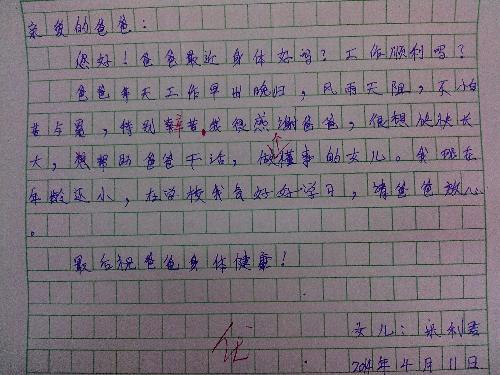 亲爱的爸爸：
您好！爸爸最近身体好吗？工作顺利吗？
爸爸每天工作早出晚归，风雨无阻，不怕
苦与累，特别辛苦。我很感谢爸爸，很想快快长
大，想帮助爸爸干活，做懂事的女儿。我现在
年龄还小，在学校我会好好学习，请爸爸放心
。
最后祝爸爸身体健康！
优
女儿：
2014年4月11日